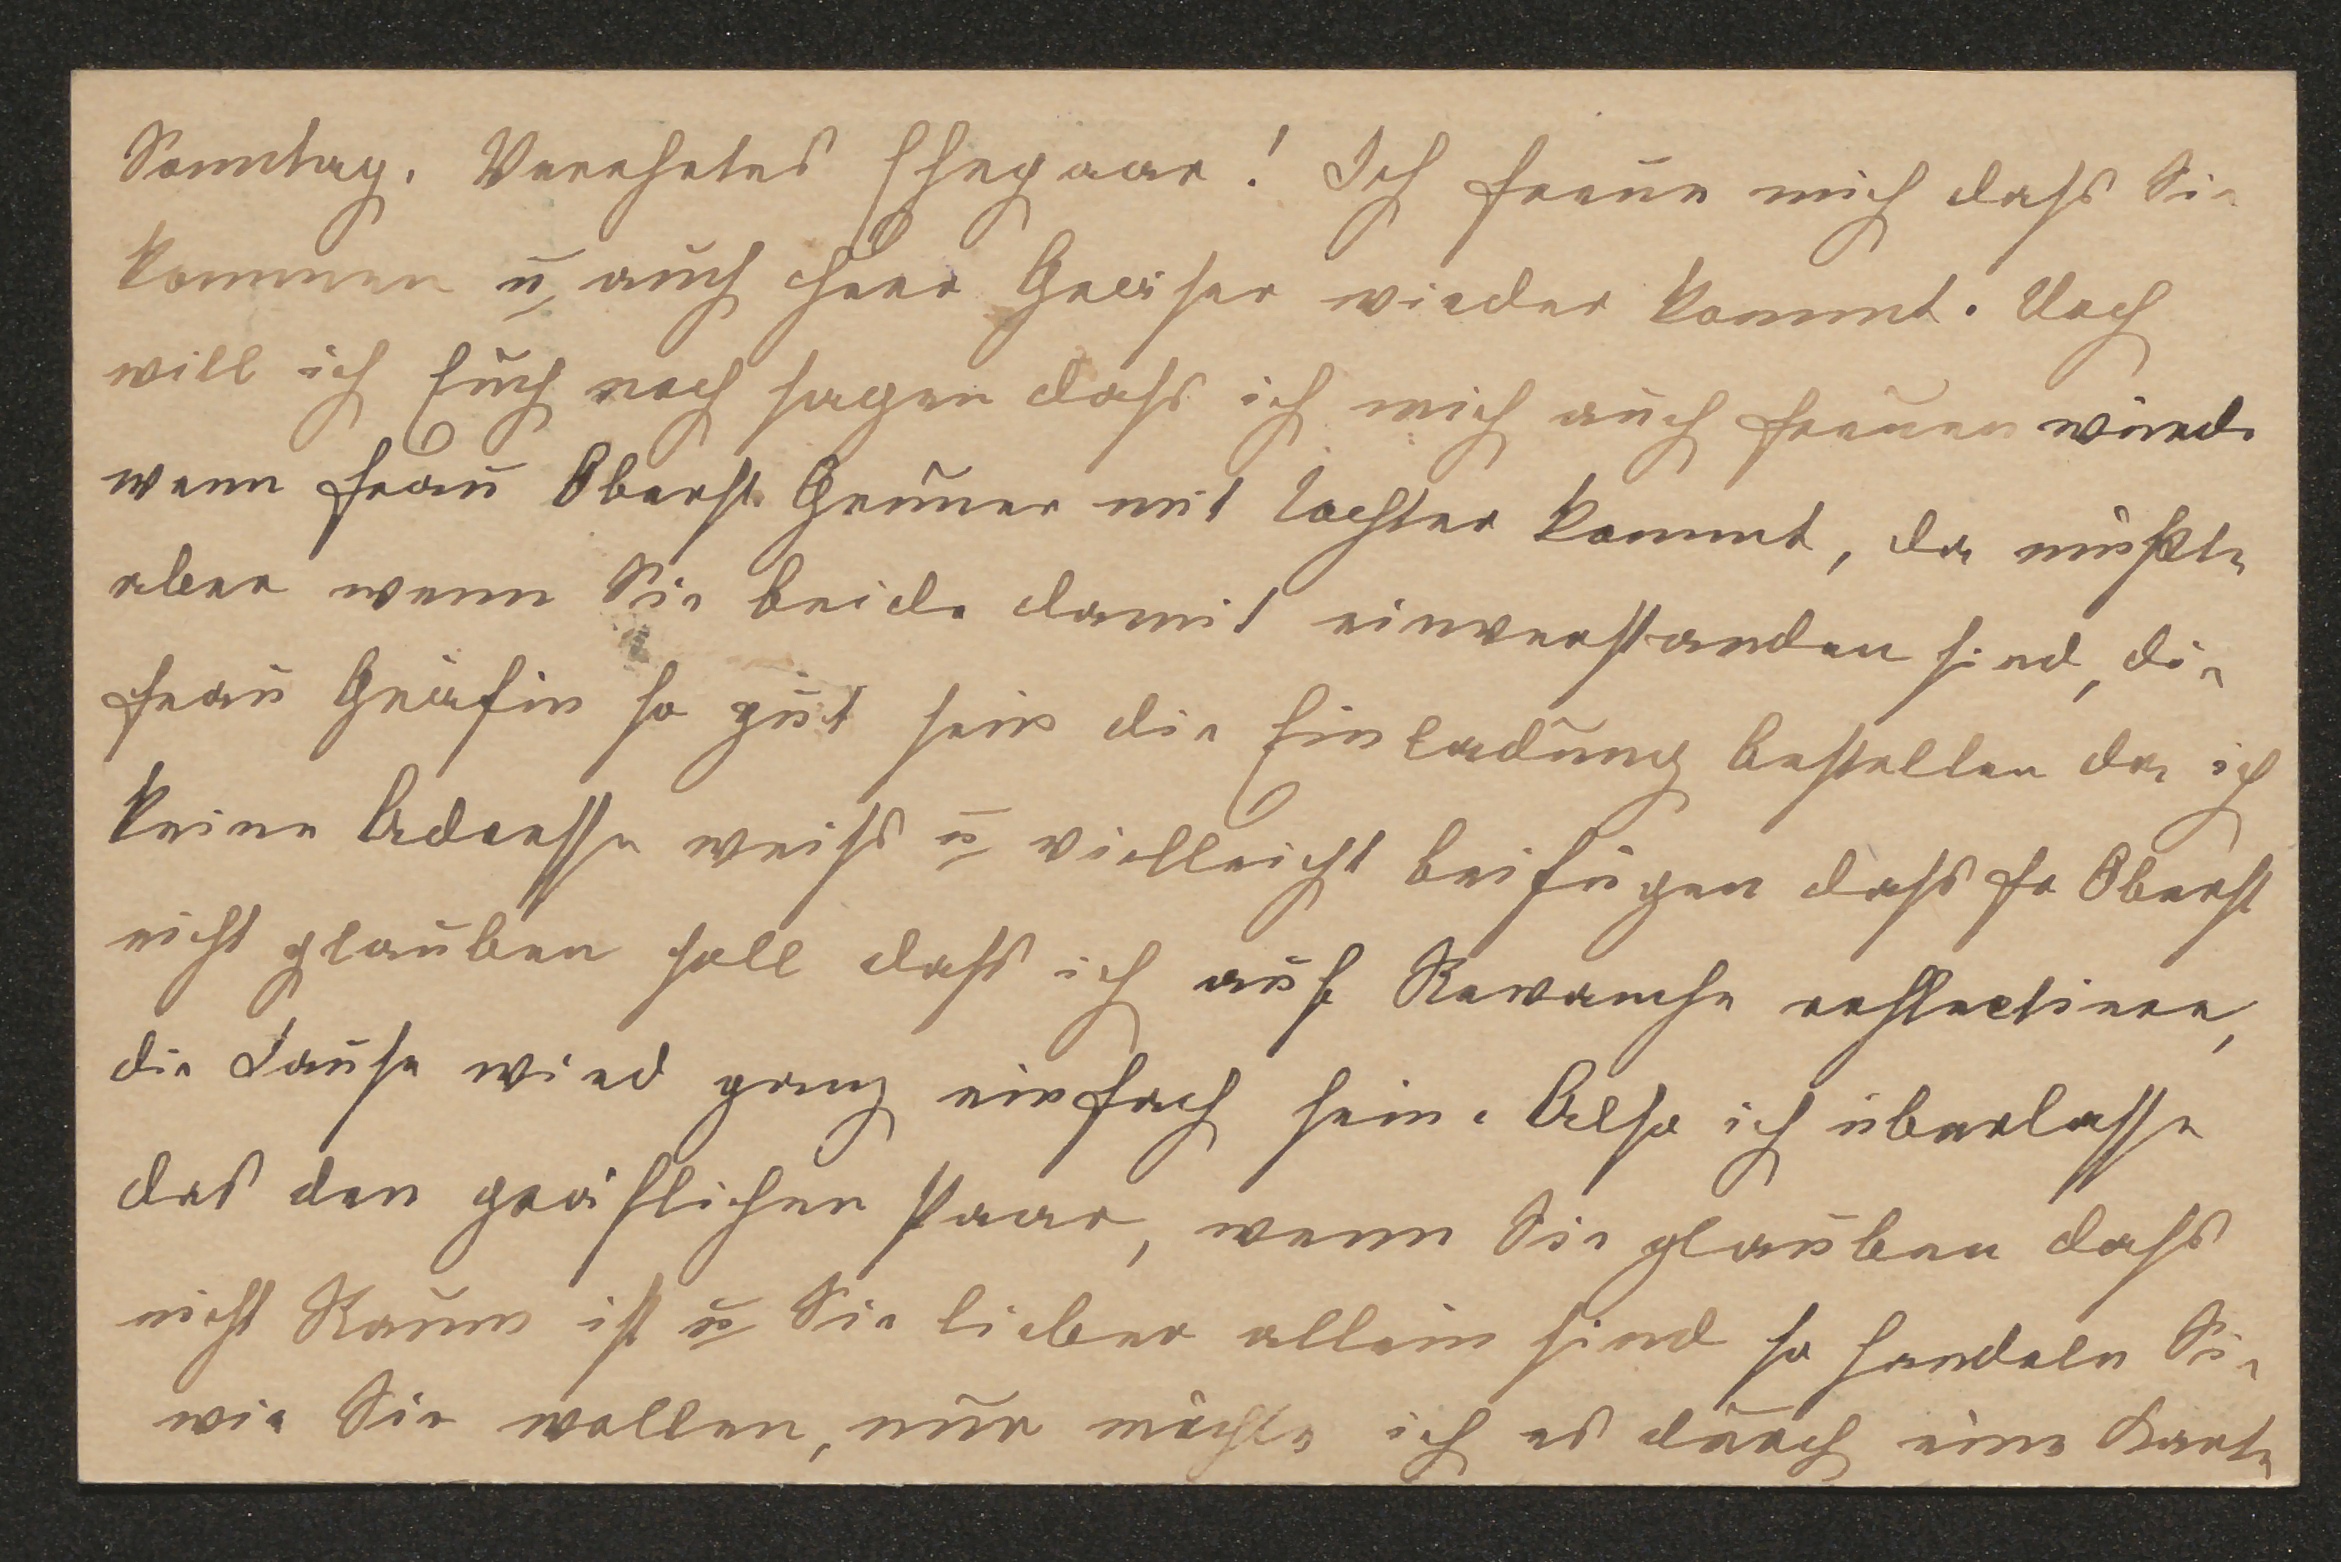 Sonntag. Verehrtes Ehepaar! Ich freue mich dass Sie
kommen u auch Herr Gräser wieder kommt. Doch
will ich Euch noch sagen dass ich mich auch freuen würde
wenn Frau Oberst Gruner mit Tochter kommt, da müßte
aber wenn Sie beide damit einverstanden sind, die
Frau Gräfin so gut sein die Einladung bestellen da ich
keine Adresse weiss u vielleicht beifügen dass Fr Oberst
nicht glauben soll dass ich auf Revanche reflectiere,
die Jause wird ganz einfach sein. Also ich überlasse
das den gräflichen Paar, wenn Sie glauben dass
nicht Raum ist u Sie lieber allein sind so handeln Sie
wie Sie wollen, nur möchte ich es durch eine Karte